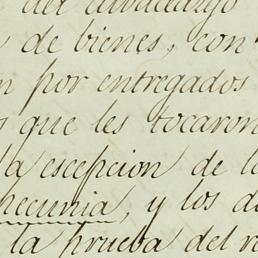 del
de bienes, con
por entregados
que les tocaron
la escepcion de
pecunia, y los
la prueba del